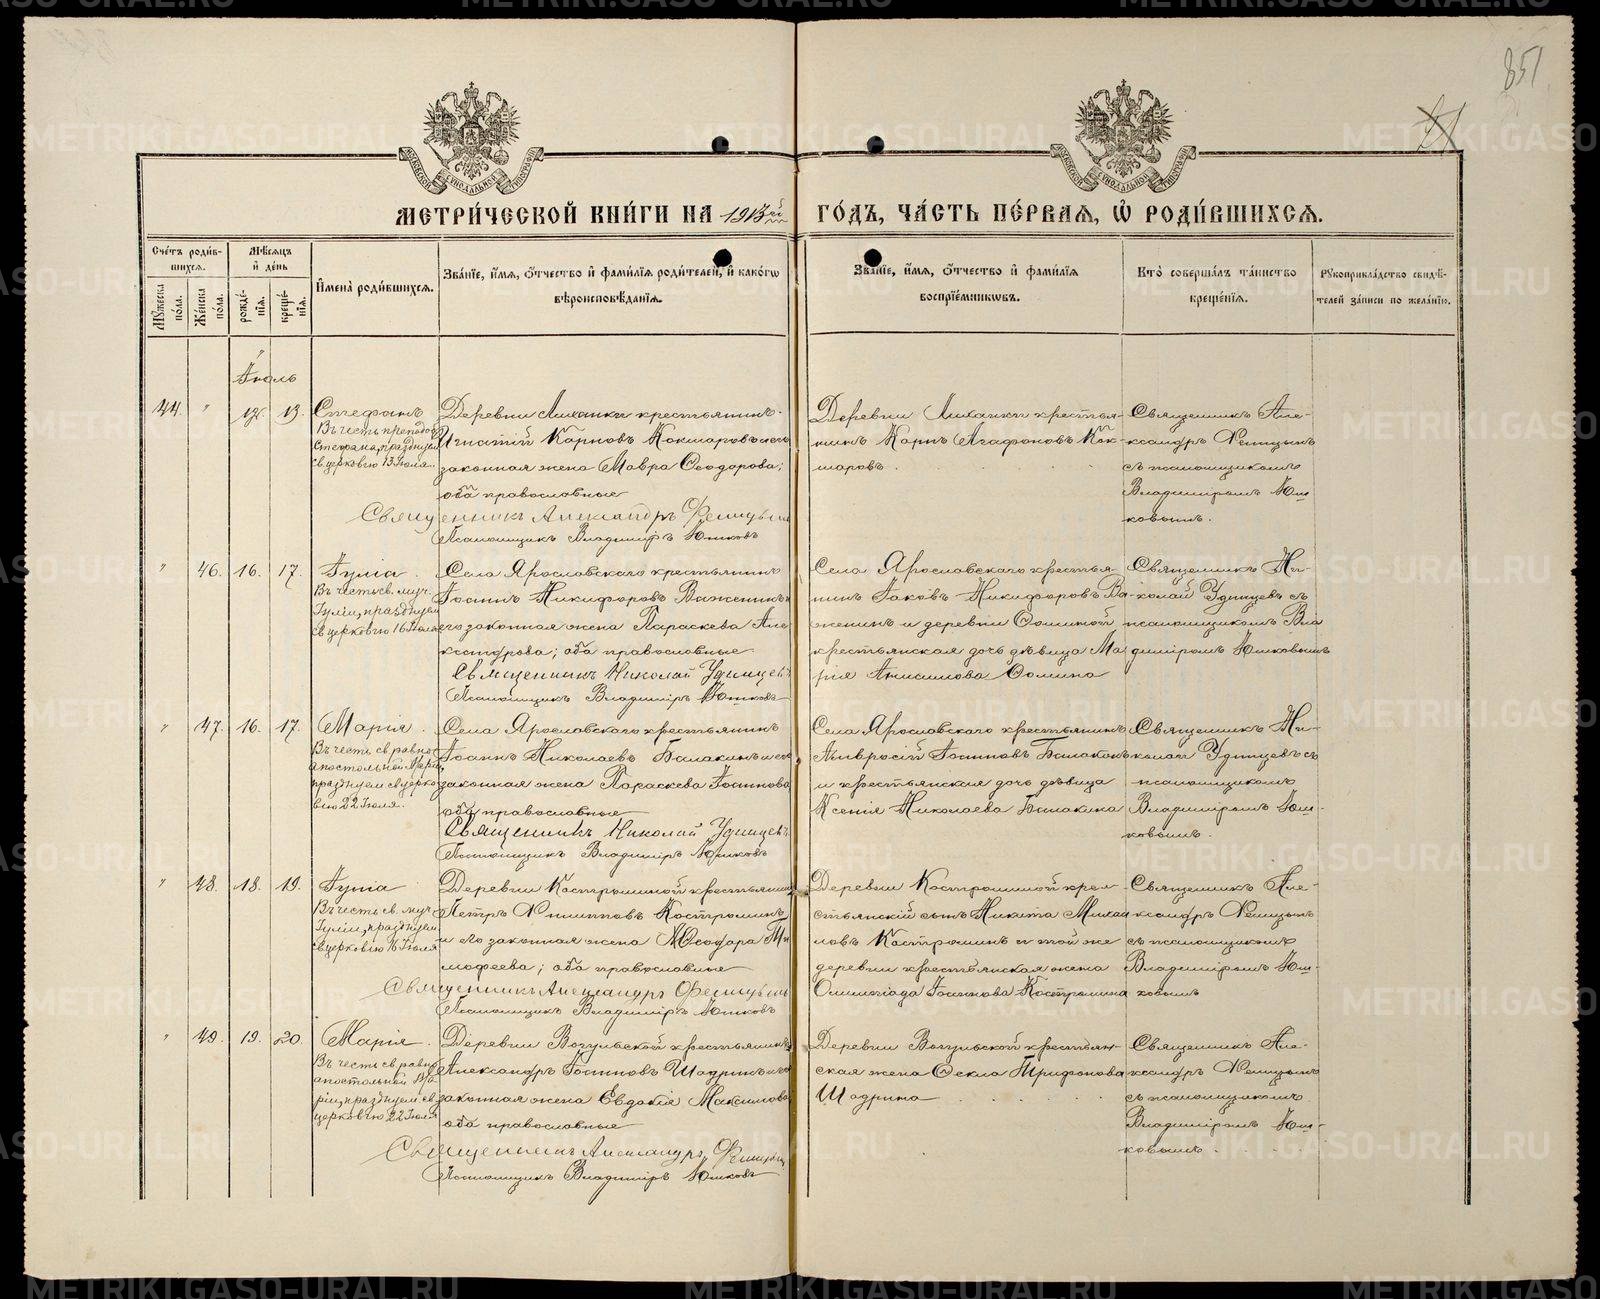 851
МЕТРИ́ЧЕСКОЙ КНИ́ГИ НА 1913й ГО́ДЪ, ЧА́СТЬ ПЕ́РВАѦ, Ѽ РОДИ́ВШИХСѦ.
Сче́тъ роди́вшихся.
Мѣсяцъ и день
Имена роди́вшихся.
Зва́нїе, и́мя, о́тчество и фами́лїя роди́телей, и како́гѡ вѣроисповѣ́данїя.
Зва́нїе, и́мя, о́тчество и фами́лїя воспрїе́мникѡвъ.
Кто̀ соверша́лъ та́инство креще́нїя.
Рукоприкла́дство свидѣ́телей за́писи по жела́нїю.
Му́жеска по́ла.
Же́нска по́ла.
рожде́нїя.
креще́нїя.
Іюль
44. " 12. 13. Стефанъ
Въ честь преподоб.
Стефана, празднуем
св. церковью 13 Іюля.
Деревни крестьянинъ
Игнатій Карповъ Кокшаровъ и его
законная жена Мавра Ѳеодорова;
оба православные
Священникъ Александръ
Псаломщикъ Владиміръ Юшковъ
Деревни крестья-
нинъ Карпъ Агафоновъ Кок-
шаровъ
Священникъ Але-
ксандръ
съ псаломщикомъ
Владиміромъ Юш-
ковымъ.
" 46. 16. 17. Іулія
Въ честь св. муч.
Іуліи, празднуем
св. церковію 16 Іюля
Села Ярославскаго крестьянинъ
Іоаннъ Никифоровъ Важенинъ и
его законная жена Параскева Але
ксандрова; оба православные
Священникъ Николай Удинцевъ
Псаломщикъ Владиміръ Юшковъ
Села Ярославскаго крестья-
нинъ Іаковъ Никифоровъ Ва-
женинъ и деревни Ѳоминой
крестьянская дочь дѣвица Ма
рія Анисимова Ѳомина
Священникъ Ни-
колай Удинцевъ съ
псаломщикомъ Вла
диміромъ Юшковымъ
" 47. 16. 17. Марія
Въ честь св. равно-
апостольной Маріи,
празднуем св. церко
вію 22 Іюля.
Села Ярославскаго крестьянинъ
Іоаннъ Николаевъ Балакинъ и его
законная жена Параскева Іоаннова
оба православные
Священникъ Николай Удинцевъ
Псаломщикъ Владиміръ Юшковъ
Села Ярославскаго крестьянинъ
Амвросій Іоанновъ Балакинъ
и крестьянская дочь дѣвица
Ксенія Николаева Балакина
Священникъ Ни-
колай Удинцевъ съ
псаломщикомъ
Владиміромъ Юш-
ковымъ.
" 48. 18. 19. Іулія
Въ честь св. муч.
Іуліи, празднуем
св. церковію 16 Іюля
Деревни Костроминой крестьянинъ
Петръ Филипповъ Костроминъ
и его законная жена Ѳеодора Ти
мофеева; оба православные
Священникъ Александръ
Псаломщикъ Владиміръ Юшковъ
Деревни Костроминой крес-
стьянскій сынъ Никита Михаи
ловъ Костроминъ и той же
деревни крестьянская жена
Олимпіада Іоаннова Костромина
Священникъ Але-
ксандръ
съ псаломщикомъ
Владиміромъ Юш-
ковымъ
" 49. 19. 20. Марія
Въ честь св. равно
апостольной Ма
ріи, празднуем св.
церковію 22 Іюля
Деревни Вогульской крестьянинъ
Александръ Іоанновъ Шадринъ и его
законная жена Евдокія Максимова
оба православные
Священникъ Александръ
Псаломщикъ Владиміръ Юшковъ
Деревни Вогульской крестьян-
ская жена Ѳекла Трифонова
Шадрина
Священникъ Але-
ксандръ
съ псаломщикомъ
Владиміромъ Юш-
ковымъ
METRIKI.GASO-URAL.RU